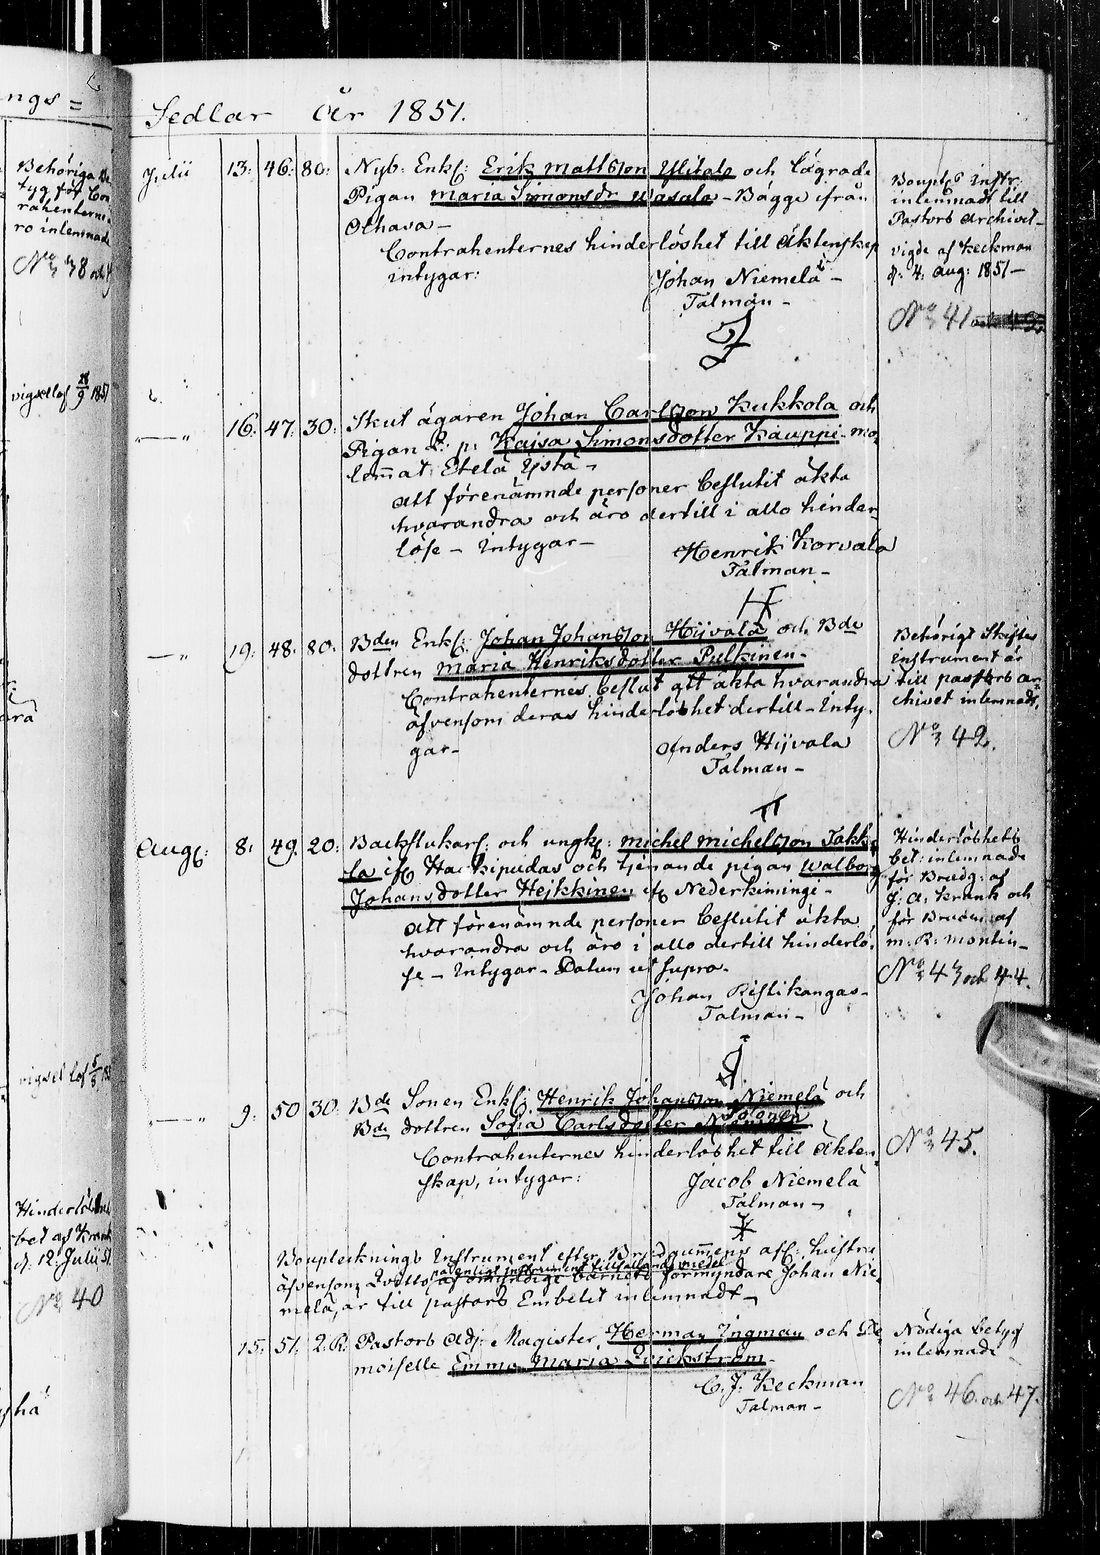 ngs =
Behöriga Be
tyg för Con
trahenterne
ro inlemnade
No 38 och
vigsel lof 28/9 1851
vigsel lof 5/3
Hinderlöshets
bet af Krank
d. 12 Julii 51.
No 40
Sedlar år 1851.
Julii 13. 46. 80. Nyb. Enkl: Erik Mattsson Ylitalo och lägrade
Pigan Maria Simonsdr Wasala - Bägge ifrån
Olhava -
Contrahenternes hinderlöshet till äktenskap
intygar:
Johan Niemelä -
Talman -
Boupt:s Instr:
inlemnadt till
Pastors Archivet -
vigde af Keckman
d. 4. aug: 1851 -
No 41 och 42
—„— 16. 47. 30. Skut ägaren Johan Carlsson Kukkola och
Pigan Kajsa Simonsdotter Kauppi -
Etelä Ystä -
att förenämnde personer beslutit äkta
hvarandra och äro dertill i allo hinder-
löse - Intygar -
Henrik Korvala
Talman -
—„— 19. 48. 80. Bden Enkl: Johan Johansson Hijvala och Bde
dottren Maria Henriksdotter Pulkinen -
Contrahenternes beslut att äkta hvarandra
äfvensom deras hinderlöshet dertill - Inty-
gar -
Anders Hijvala
Talman -
Behörigt Skiftes
Instrument är
till pastors ar-
chivet inlemnadt,
No 42.
Aug: 8. 49. 20. Backstukarl: och ungk: Michel Michelsson Takk-
la ifr Haukipudas och tjenande pigan Walborg
Johansdotter Hejkkinen ifr Nederkimingi -
att förenämnde personer beslutit äkta
hvarandra och äro i allo dertill hinderlö-
se - Intygar - Datum ut supra -
Johan Ristikangas -
Talman -
Hinderlöshets
bet: inlemnade
för Brudg: af
J: A. Krank och
för Bruden af
M: R: Montin -
No 43 och 44.
—„— 9. 50. 30. Bde Sonen Enkl: Henrik Johansson Niemelä och
Bde dottren Sofia Carlsdotter
Contrahenternes hinderlöshet till äkten-
skap, intygar:
Jacob Niemelä
Talman -
No 45.
Boupptecknings Instrument efter Brudgummens afl: hustru
äfvensom förmyndare Johan Nie-
melä, är till pastors Embetet inlemnadt -
15. 51. 2. R. Pastors Adj: Magister Herman Ingman och De-
moiselle Emma Maria Qvickström -
C. J. Keckman
Talman -
Nödiga betyg
inlemnade
No 46. och 47.